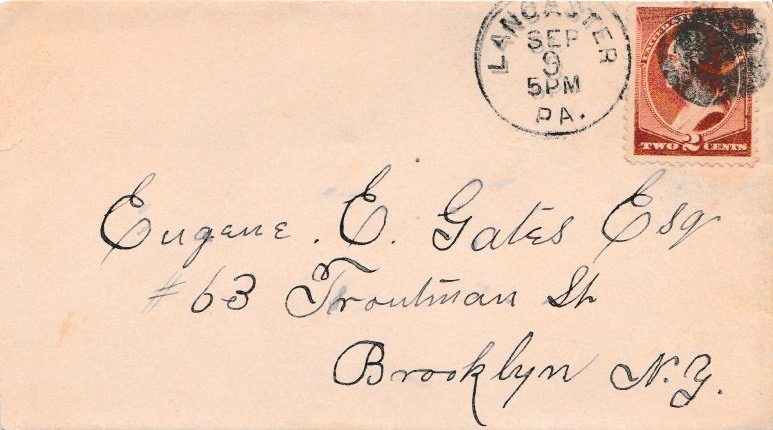 LANCASTER
SEP
9
5PM
PA.
TWO 2 CENTS
Eugene. E. Gates Esq
#63 Troutman St
Brooklyn N.Y.